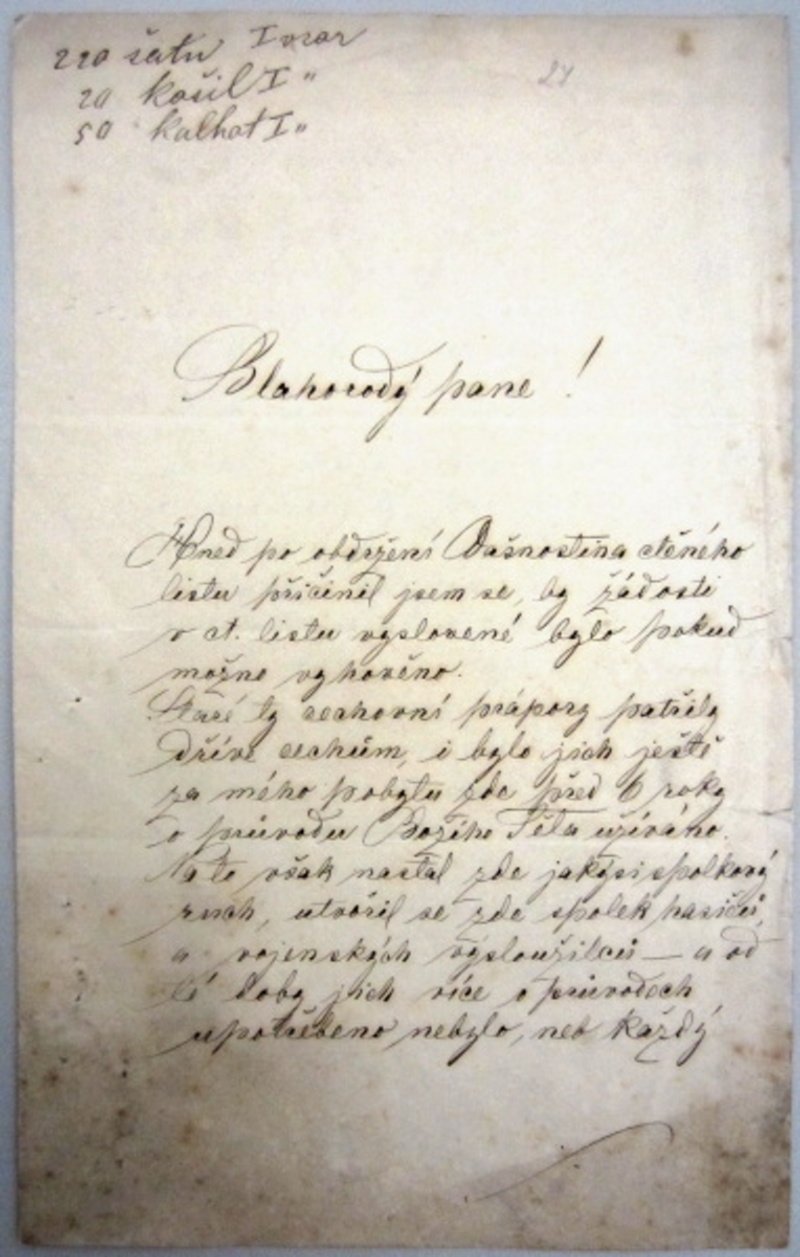 220 šatu I vzor
20 košil I "
50 kalhot I "
27
Blahorodý pane!
Hned po obdržení Vašnostina ctěného
listu přičinil jsem se, by žádosti
v ct. listu vyslovené bylo pokud
možno vyhověno.
Staré ty cechovní prápory patřily
dříve cechům, i bylo jich ještě
za mého pobytu zde před 6 roky
o průvodu Božího Těla užíváno.
Na to však nastal zde jakýsi spolkový
ruch, utvořil se zde spolek hasičů,
a vojenských vysloužilců — a od
té doby jich více o průvodech
upotřebeno nebylo, neb každý